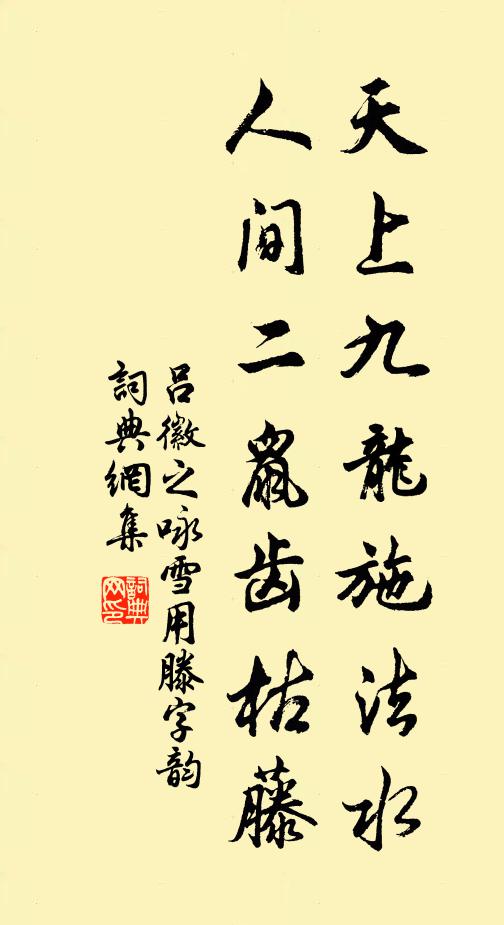 天上九龍施法水
人间二鼠齿枯藤
吕徽之咏雪用滕字韵
詞典網集
詞典网印